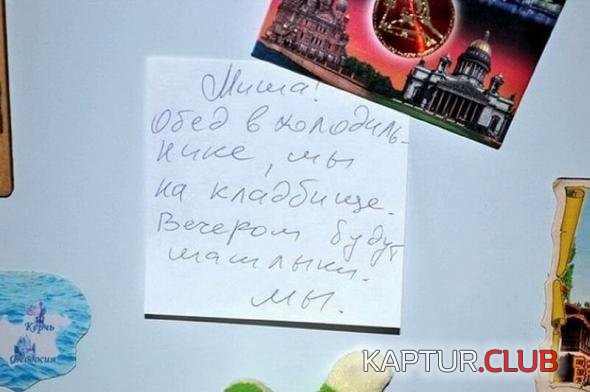 Миша!
Обед в холодиль-
нике, мы
на кладбище.
Вечером будут
шашлыки.
Мы.
Керчь
Феодосия
KAPTUR.CLUB